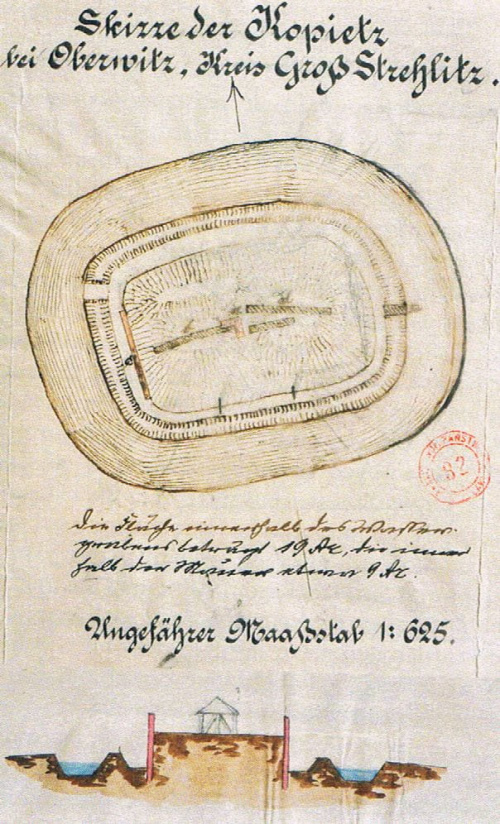 Skizze der Kopietz
bei Oberwitz, Kreis Groß Strehlitz.
Die Fläche innerhalb des Wasser-
grabens beträgt 19 Ar, die inner
halb der Mauer etwa 9 Ar.
Ungefährer Maaßstab 1:625.
32